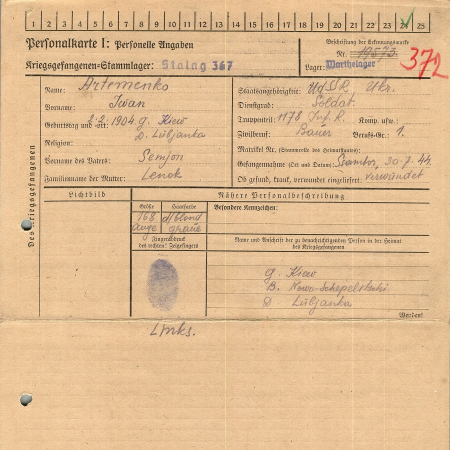 1 2 3 4 5 6 7 8 9 10 11 12 13 14 15 16 17 18 19 20 21 22 23 24 25
Personalkarte I: Personelle Angaben
Kriegsgefangenen-Stammlager: Stalag 367
Beschriftung der Erkennungsmarke
Nr. 19573
Lager: Warthelager
372
Des Kriegsgefangenen
Name: Artemenko
Vorname: Iwan
Geburtstag und -ort 2.2.1904 g. Kiew
Religion: D. Lubljanka
Vorname des Vaters: Semjon
Familienname der Mutter: Lenok
Staatsangehörigkeit: UdSSR Ukr.
Dienstgrad: Soldat
Truppenteil: 1178 Inf. R. Komp. usw.:
Zivilberuf: Bauer Berufs-Gr.: 1.
Matrikel Nr. (Stammrolle des Heimatstaates):
Gefangennahme (Ort und Datum): 30.7.44
Ob gesund, krank, verwundet eingeliefert: verwundet
Lichtbild
Nähere Personalbeschreibung
Größe Haarfarbe
168 d/blond
Auge graue
Besondere Kennzeichen:
Fingerabdruck
des rechten Zeigefingers
Name und Anschrift der zu benachrichtigenden Person in der Heimat
des Kriegsgefangenen
g. Kiew
B. Nowo-Schepelitschi
D. Lubljanka
Wenden!
Links.